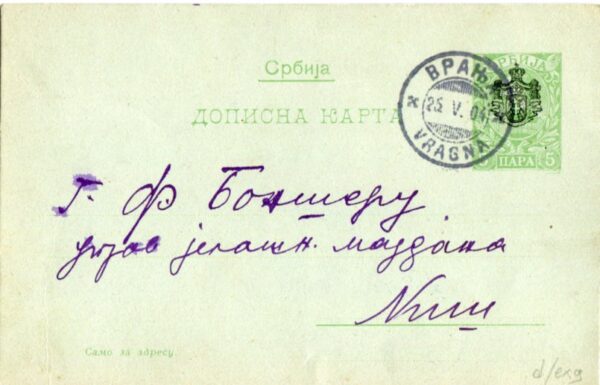 Србија
ДОПИСНА КАРТА
СРБИЈА
ПАРА 5
ВРАЊ
25 V. 04
VRAGNA
Г. Ф Бонтеру
јелашн. мајдана
Ниш
Само за адресу.